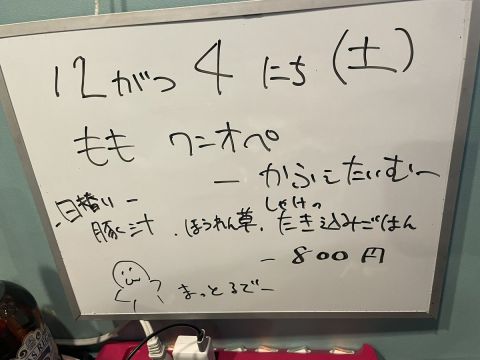 12がつ4にち(土)
もも ワンオペ
ー かふぇたいむー
・日替りー
豚汁 ・ほうれん草・しゃけのたき込みごはん
ー 800円
まっとるでー